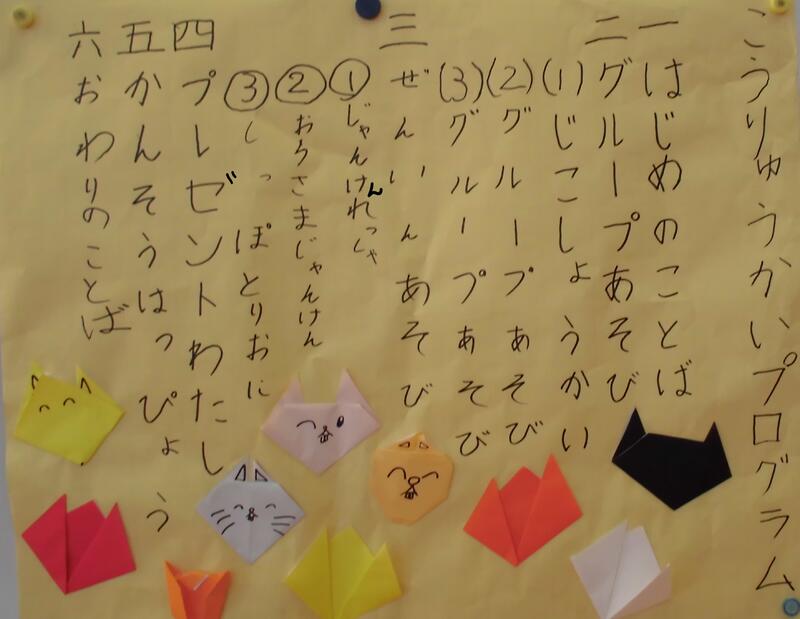 こうりゅうかいプログラム
一 はじめのことば
二 グループあそび
(1)じこしょうかい
(2)グループあそび
(3)グループあそび
三 ぜんいんあそび
①じゃんけんれっしゃ
②おうさまじゃんけん
③しっぽとりおに
四 プレゼントわたし
五 かんそうはっぴょう
六 おわりのことば